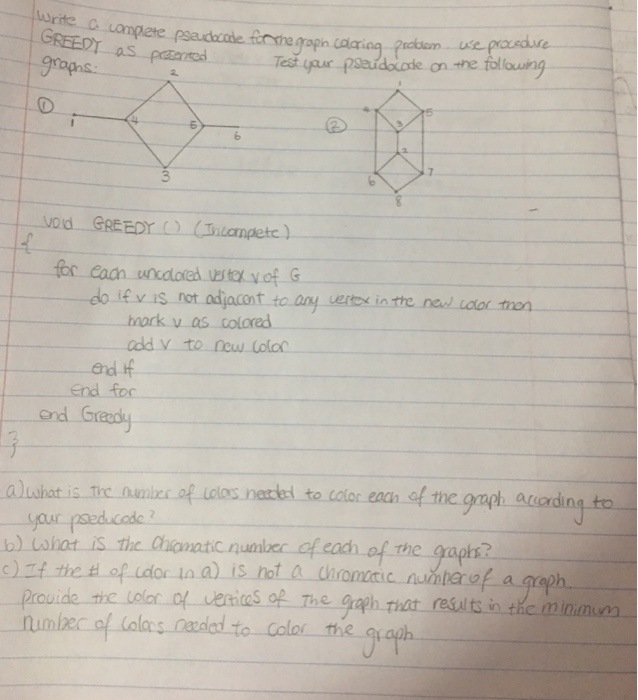 Write a complete pseudocode for the graph coloring problem use procedure
GREEDY as presented Test your pseudocode on the following
graphs.
① 2
1 4 5 6
3
② 1
4 5
3
2
6 7
8
void GREEDY () (Incomplete)
{
for each uncolored vertex v of G
do if v is not adjacent to any vertex in the new color then
mark v as colored
add v to new color
end if
end for
end Greedy
}
a) what is the number of colors needed to color each of the graph according to
your pseducode?
b) What is the Chromatic number of each of the graphs?
c) If the # of color in a) is not a chromatic number of a graph.
provide the color of vertices of the graph that results in the minimum
number of colors needed to color the graph